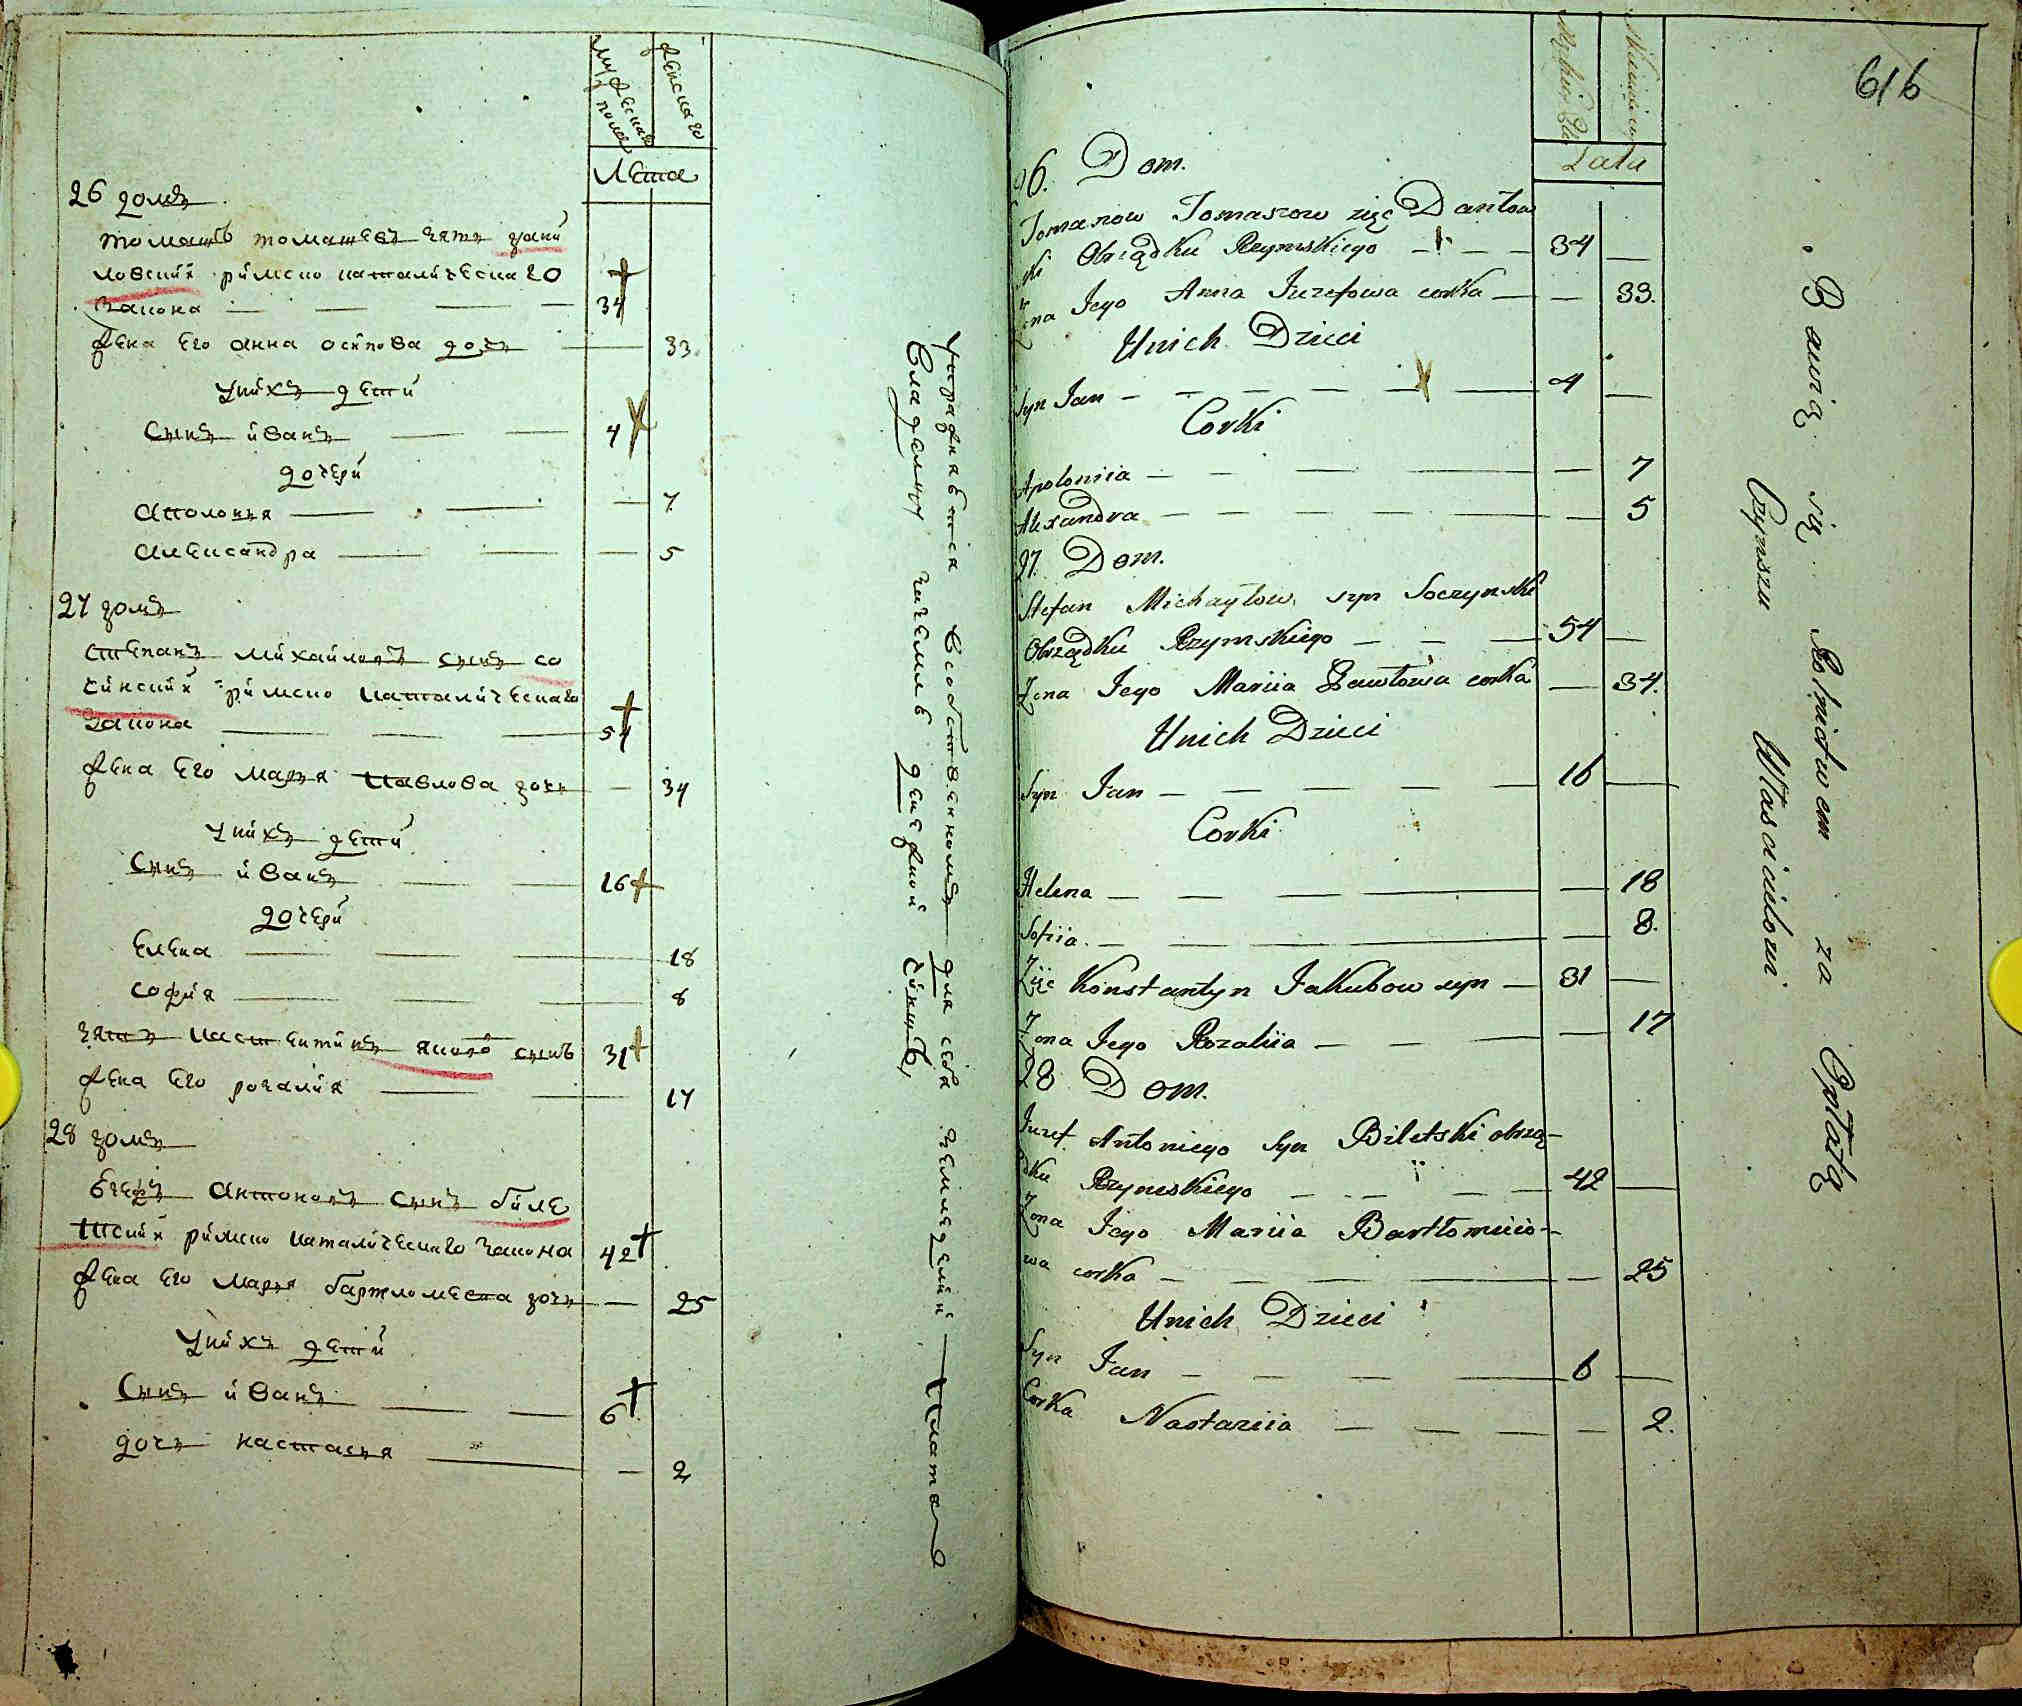 мужеска
пола
женска го
Лета
26 домъ
томашъ томашевъ зять дани
ловский римско католическаго
закона 34
жена его анна осипова дочь 33
у них дети
Сынъ иванъ 4
дочери
аполония 7
александра 5
27 домъ
степанъ михайловъ сынъ со
чинский римско католическаго
закона 54
жена его марья павлова дочь 34
у них дети
Сынъ иванъ 16
дочери
елена 18
софия 8
зять костентинъ якубо сынъ 31
жена его розалия 17
28 домъ
юзефъ антоновъ сынъ биле
тский римско католическаго закона 42
жена его марья бартломеева дочь 25
у них дети
Сынъ иванъ 6
дочь настасья 2
упражняются собственнымъ для себя земледелий плата
владелцу денежной чиншъ
616
Męskiey
Lata
26. Dom.
Tomaszow zięc Daniłow
ski Obrządku Rzymskiego 34
Żona Jego Anna Juzefowa corka 33.
Unich Dzieci
Syn Jan 4
Corki
Apoloniia 7
Alexandra 5
27. Dom.
Stefan Michayłow syn Soczynski
Obrządku Rzymskiego 54
Żona Jego Mariia Pawłowa corka 34.
Unich Dzieci
Syn Jan 16
Corki
Helena 18
Sofiia 8.
Zięc Konstantyn Jakubow syn 31
Żona Jego Rozaliia 17
28 Dom.
Juzef Antoniego Syn Biletski obrzą-
dku Rzymskiego 42
Żona Jego Mariia Bartłomieio-
wa corka 25
Unich Dzieci
Syn Jan 6
Corka Nastaziia 2.
Bawią się Rolnictwem za Opłatą
Czynszu Włascicielowi